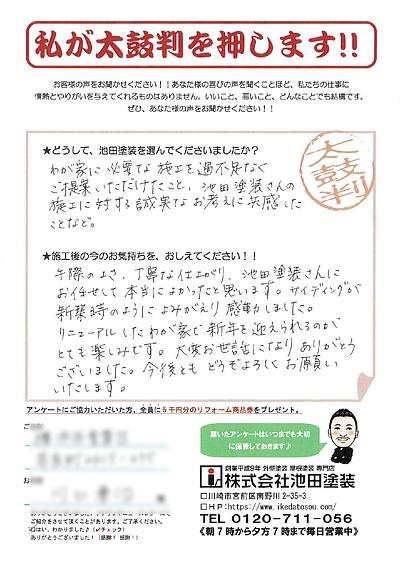 私が太鼓判を押します!!
お客様の声をお聞かせください！！あなた様の喜びの声を聞くことほど、私たちの仕事に
情熱とやりがいを与えてくれるものはありません。いいこと、悪いこと、どんなことでも結構です。
ぜひ、あなた様の声をお聞かせください！！
★どうして、池田塗装を選んでくださいましたか？
太鼓判
わが家に必要な施工を過不足なく
ご提案いただけたこと、池田塗装さんの
施工に対する誠実なお考えに共感した
ことなど。
★施工後の今のお気持ちを、おしえてください！！
手際のよさ、丁寧な仕上がり、池田塗装さんに
お任せして本当によかったと思います。サイディングが
新築時のようによみがえり感動しました。
リニューアルしたわが家で新年を迎えられるのが
とても楽しみです。大変お世話になりありがとう
ございました。今後ともどうぞよろしくお願い
いたします。
アンケートにご協力いただいた方、全員に5千円分のリフォーム商品券をプレゼント。
ご記入
届いたアンケートはいつまでも大切
に保管しておきます♪
創業平成8年 外壁塗装 屋根塗装 専門店
株式会社池田塗装
□川崎市宮前区南野川 2-35-3
□HP:https://www.ikedatosou.com/
TEL 0120-711-056
《朝7時から夕方7時まで毎日営業中》
ご紹介をさせて頂くことがあります。ご了承ください。
はい、わかりました♪(✓チェック)
ありがとうございました！(感謝！感謝！)